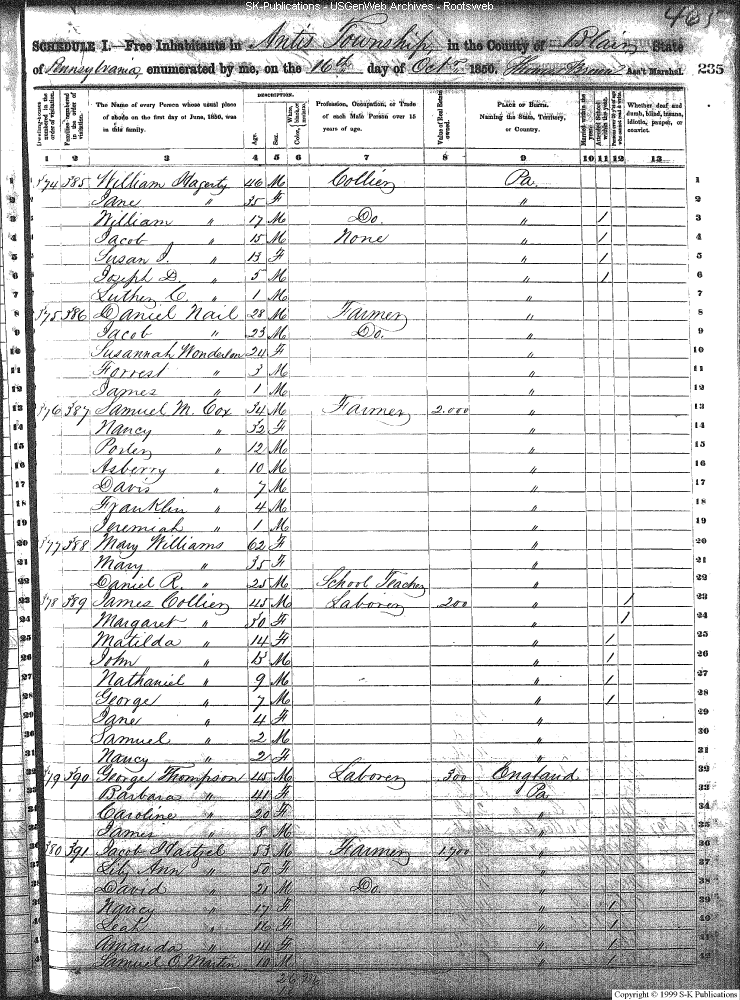 SK-Publications - USGenWeb Archives - Rootsweb
465
SCHEDULE I.—Free Inhabitants in Antis Township, in the County of Blair State
of Pennsylvania enumerated by me, on the 16th day of Octr 1850. Ass't Marshal. 235
DESCRIPTION.
Dwelling-houses numbered in the order of visitation. Families numbered in the order of visitation. The Name of every Person whose usual place of abode on the first day of June, 1850, was in this family. Age. Sex. White, black, or mulatto. Color, Profession, Occupation, or Trade of each Male Person over 15 years of age. Value of Real Estate owned. PLACE OF BIRTH. Naming the State, Territory, or Country. Married within the year. Attended School within the year. Persons over 20 y'rs of age who cannot read & write. Whether deaf and dumb, blind, insane, idiotic, pauper, or convict.
1 2 3 4 5 6 7 8 9 10 11 12 13
1 374 385 William Hagerty 46 M Collier Pa. 1
2 Jane " 35 F " 2
3 William " 17 M Do. " / 3
4 Jacob " 15 M None " / 4
5 Susan J. " 13 F " / 5
6 Joseph D. " 5 M " / 6
7 Luther C. " 1 M " 7
8 375 386 Daniel Nail 28 M Farmer " 8
9 Jacob " 23 M Do. " 9
10 Susannah Wonderson 24 F " 10
11 Forrest " 3 M " 11
12 James " 1 M " 12
13 376 387 Samuel M. Cox 34 M Farmer 2.000 " 13
14 Nancy " 32 F " 14
15 Porter " 12 M " 15
16 Asberry " 10 M " 16
17 Davis " 7 M " 17
18 Franklin " 4 M " 18
19 Jeremiah " 1 M " 19
20 377 388 Mary Williams 62 F " 20
21 Mary " 35 F " 21
22 Daniel R. " 25 M School Teacher " 22
23 378 389 James Collier 45 M Laborer 200 " / 23
24 Margaret " 30 F " / 24
25 Matilda " 14 F " / 25
26 John " 13 M " / 26
27 Nathaniel " 9 M " / 27
28 George " 7 M " / 28
29 Jane " 4 F " 29
30 Samuel " 2 M " 30
31 Nancy " 2 F " 31
32 379 390 George Thompson 45 M Laborer 300 England 32
33 Barbara " 41 F Pa 33
34 Caroline " 20 F " 34
35 James " 8 M " 35
36 380 391 Jacob Hartzel 53 M Farmer 1.700 " 36
37 Ann " 50 F " 37
38 David " 21 M Do. " 38
39 Nancy " 17 F " / 39
40 Leah " 16 F " / 40
41 Amanda " 14 F " / 41
42 Samuel O. Martin 10 M " / 42
26 M
Copyright © 1999 S-K Publications